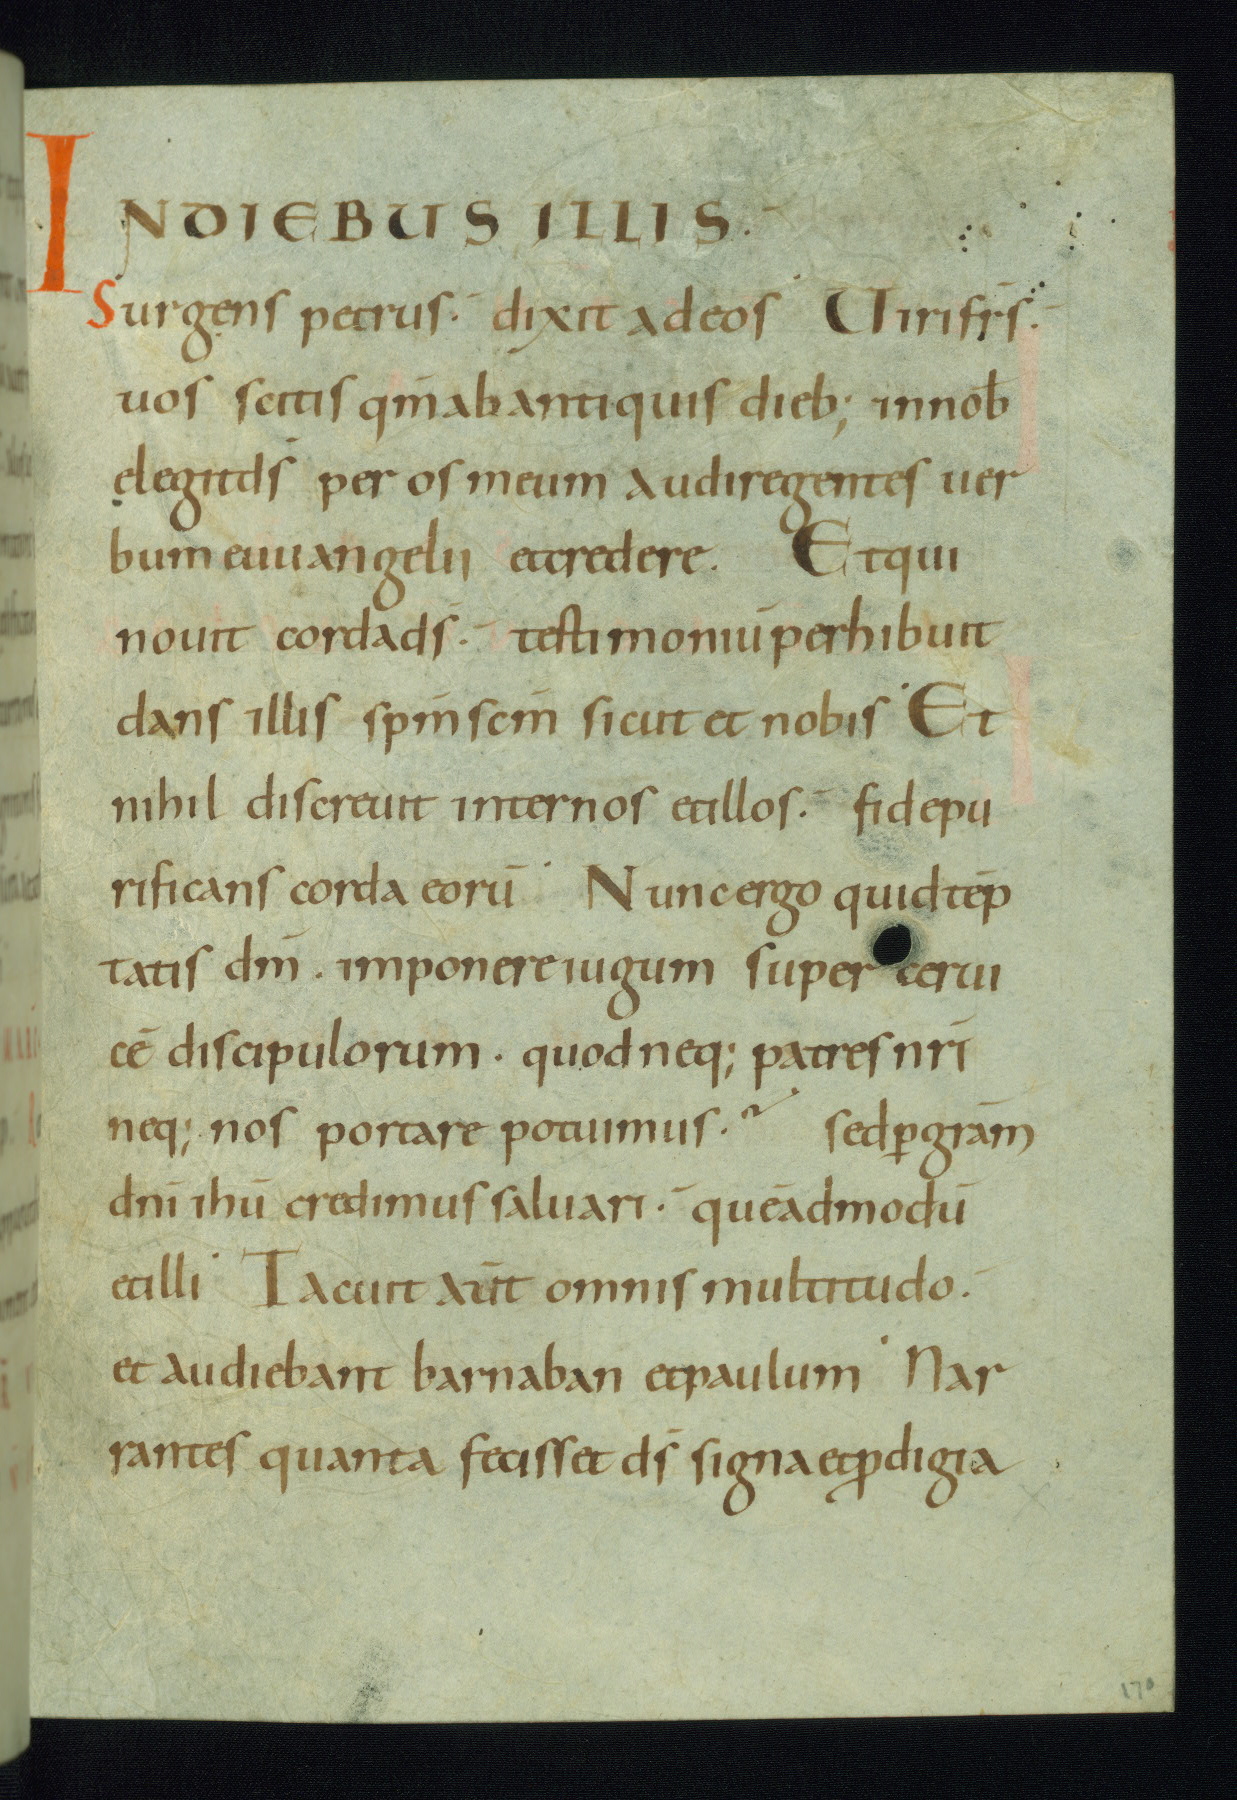 INDIEBUS ILLIS.
Surgens petrus. dixit adeos Uirifrs̄.
uos scitis qm̄ab antiquis dieb; innob̄
elegitds̄ per os meum audiregentes uer
bum euuangelii etcredere. Etqui
nouit cordads̄. testimoniūperhibuit
dans illis spm̄scm̄ sicut et nobis Et
nihil discreuit internos etillos. fidepu
rificans corda eorū Nuncergo quidtēp
tatis dm̄. imponereiugum super cerui
cē discipulorum. quodneq; patresnrī
neq; nos portare potuimus. sedꝑgrām
dnī ihū credimussaluari. quēadmodū
etilli Tacuit aūt omnismultitudo.
et audiebant barnaban etpaulum Nar
rantes quanta fecisset ds̄ signaetꝓdigia
170